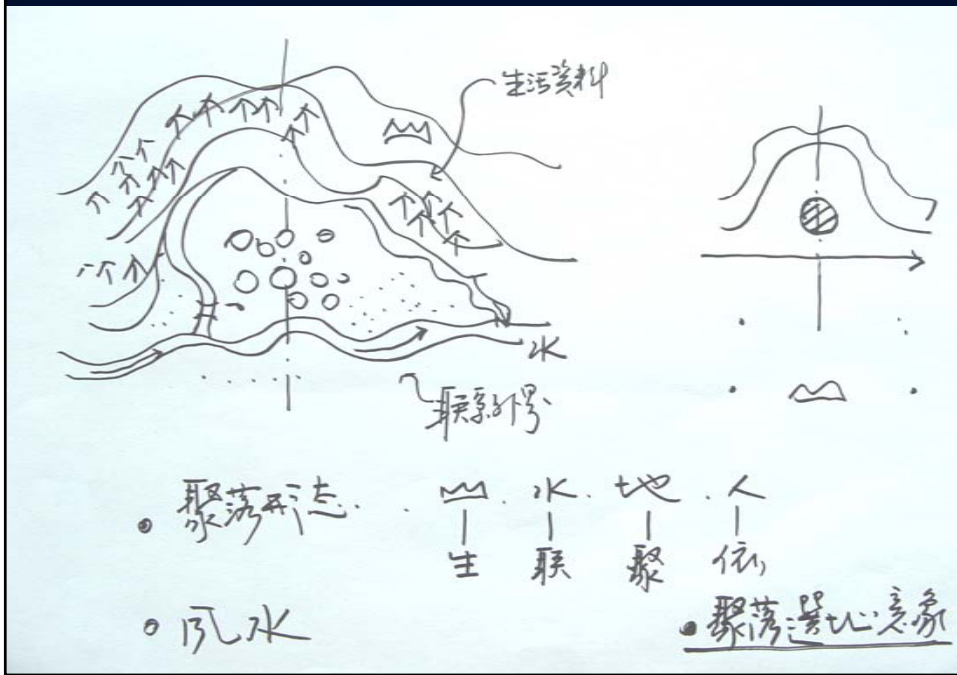 生活资料
水
联系外界
聚落形态. . 山. 水. 地. 人
生 联 聚 依
风水
聚落選址意象